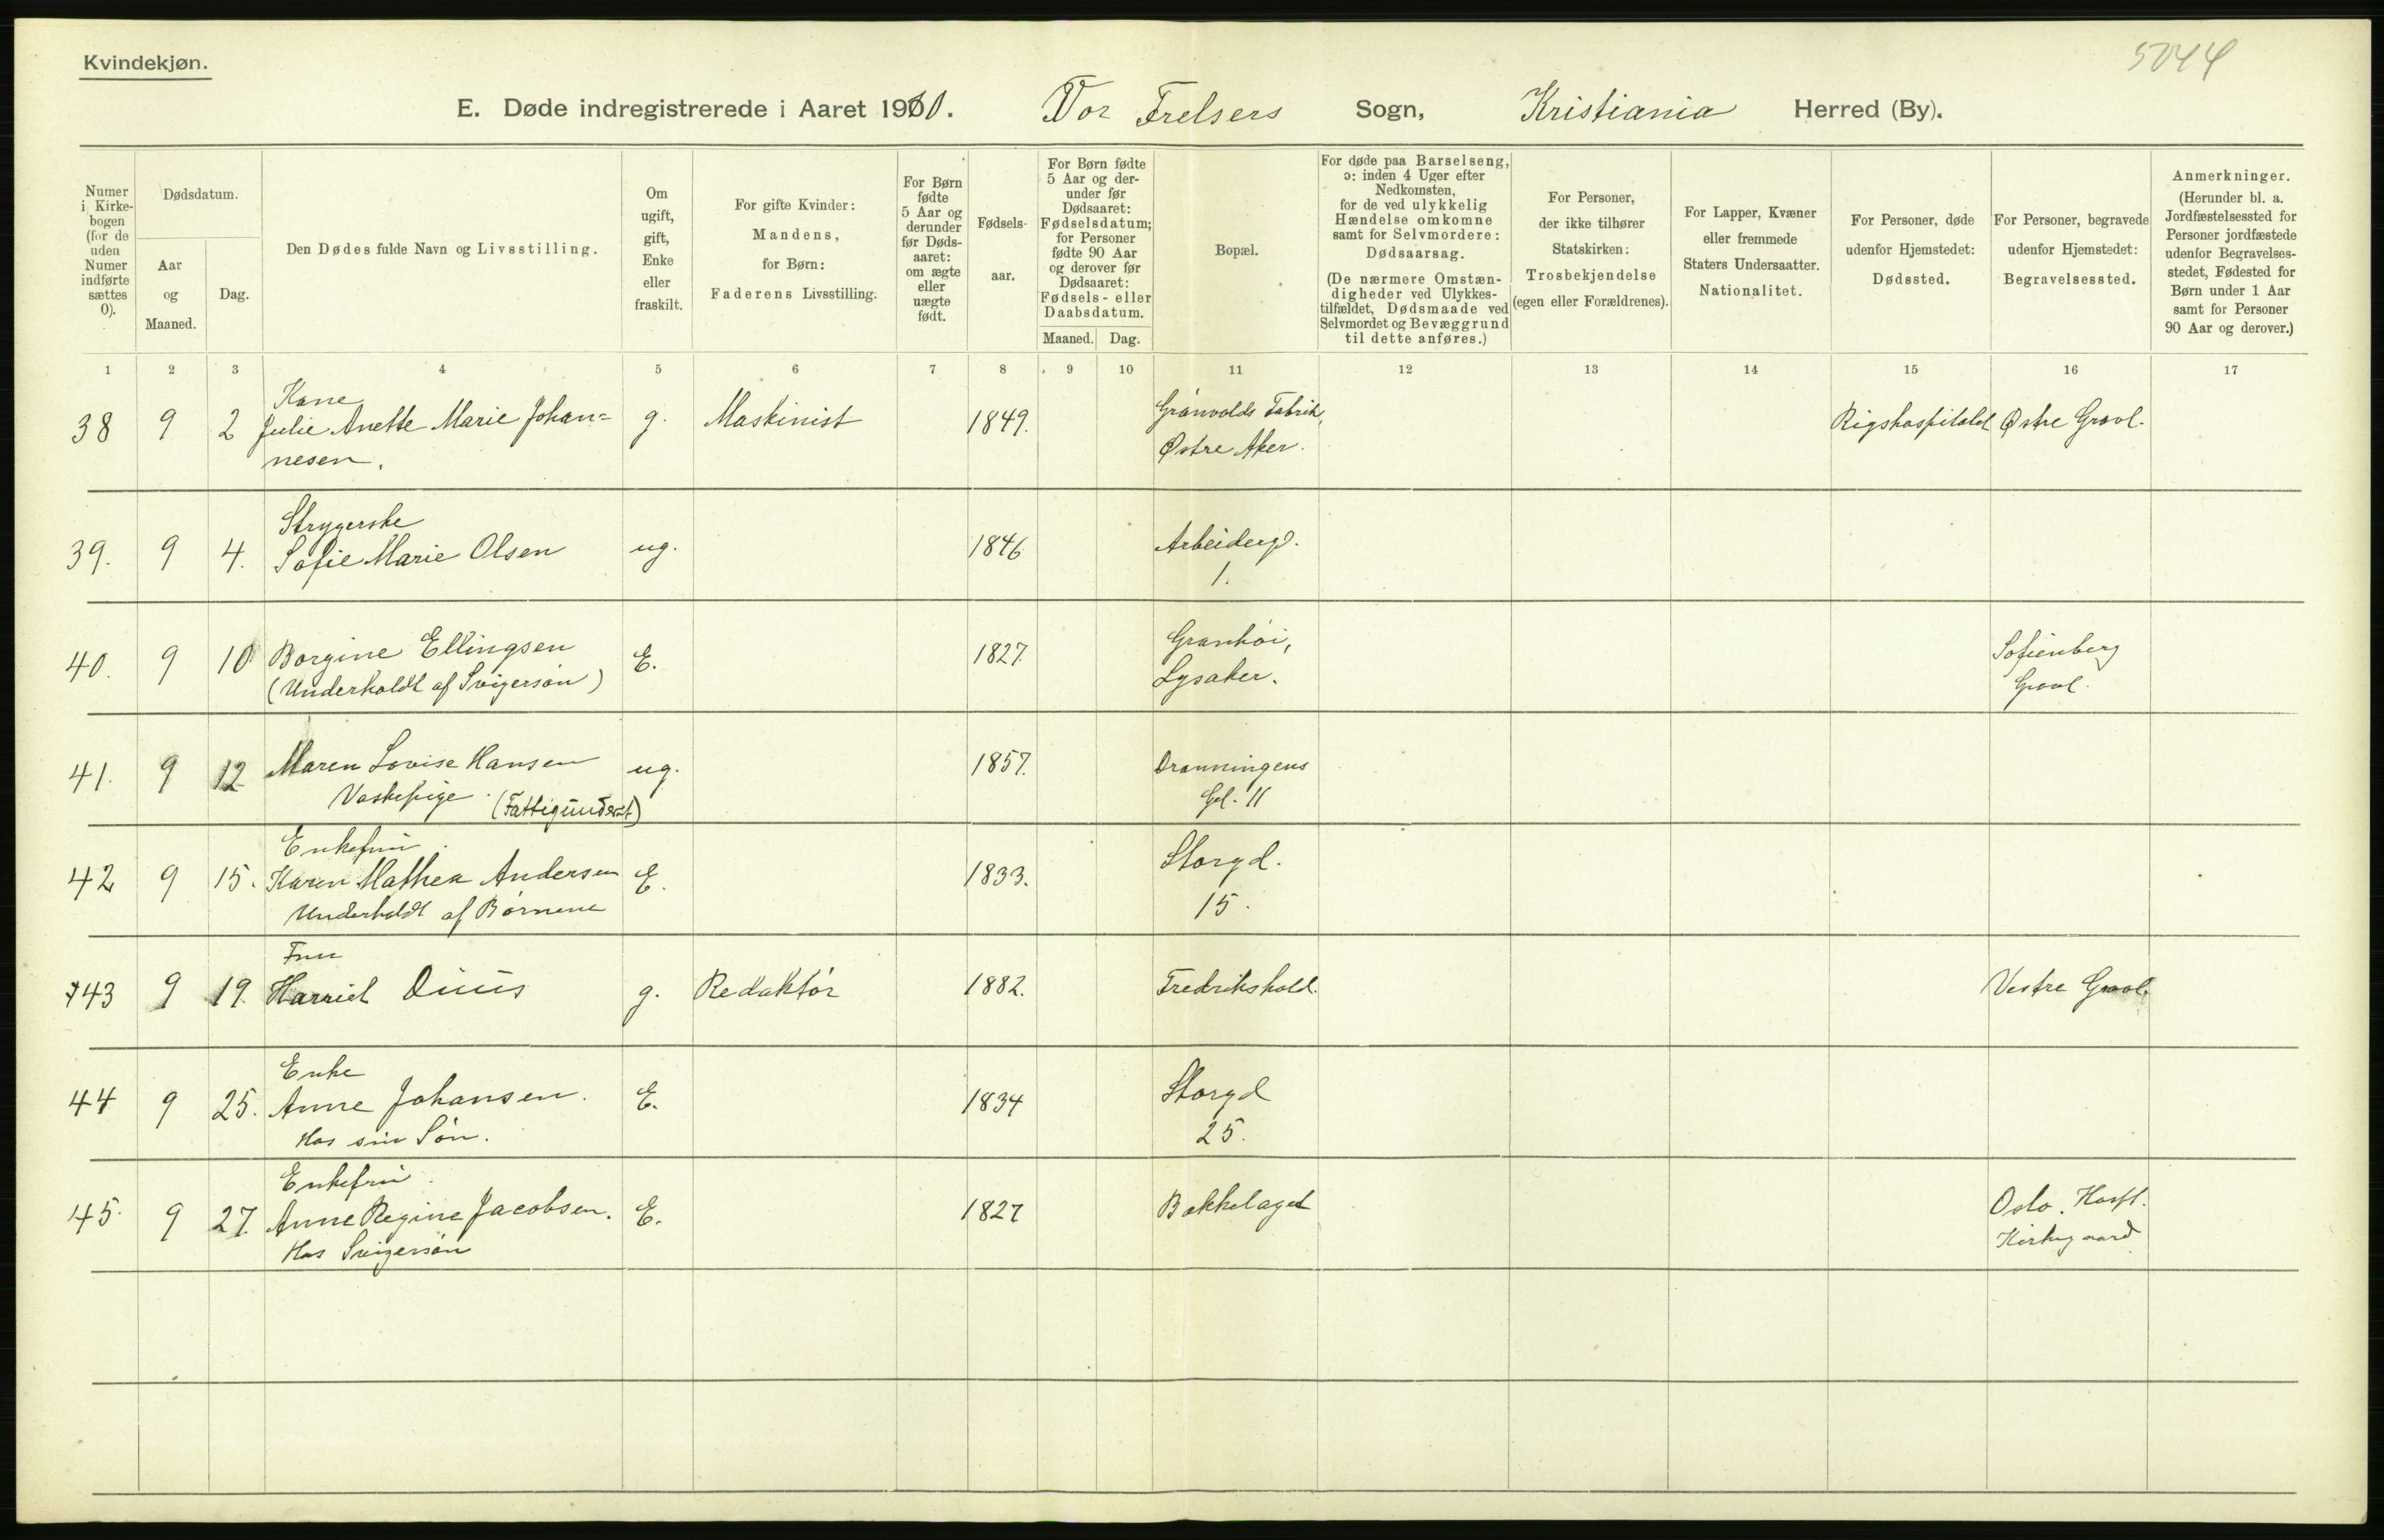 Kvindekjøn.
5044
E. Døde indregistrerede i Aaret 1910. Vor Frelsers Sogn, Kristiania Herred (By).
Numer i Kirke-bogen (for de uden Numer indførte sættes 0).
Dødsdatum.
Aar og Maaned.
Dag.
Den Dødes fulde Navn og Livsstilling.
Om ugift, gift, Enke eller fraskilt.
For gifte Kvinder: Mandens, for Børn: Faderens Livsstilling.
For Børn fødte 5 Aar og derunder før Døds-aaret: om ægte eller uægte født.
Fødsels-aar.
For Børn fødte 5 Aar og der-under før Dødsaaret: Fødselsdatum; for Personer fødte 90 Aar og derover før Dødsaaret: Fødsels- eller Daabsdatum.
Maaned. Dag.
Bopæl.
For døde paa Barselseng, ɔ: inden 4 Uger efter Nedkomsten, for de ved ulykkelig Hændelse omkomne samt for Selvmordere: Dødsaarsag.
(De nærmere Omstæn-digheder ved Ulykkes-tilfældet, Dødsmaade ved Selvmordet og Bevæggrund til dette anføres.)
For Personer, der ikke tilhører Statskirken: Trosbekjendelse (egen eller Forældrenes).
For Lapper, Kvæner eller fremmede Staters Undersaatter. Nationalitet.
For Personer, døde udenfor Hjemstedet: Dødssted.
For Personer, begravede udenfor Hjemstedet: Begravelsessted.
Anmerkninger.
(Herunder bl. a. Jordfæstelsessted for Personer jordfæstede udenfor Begravelses-stedet, Fødested for Børn under 1 Aar samt for Personer 90 Aar og derover.)
1 2 3 4 5 6 7 8 9 10 11 12 13 14 15 16 17
Kone
38 9 2 Julie Anette Marie Johan= g. Maskinist 1849. Grønvolds Fabrik, Rigshospitalet Østre Gravl.
nesen. Østre Aker.
Strygerske
39. 9 4. Sofie Marie Olsen ug. 1846 Arbeiderg.
1.
40. 9 10 Borgine Ellingsen E. 1827. Granhöi, Sofienberg
(Underholdt af Svigersön) Lysaker. Gravl.
41. 9 12 Maren Lovise Hansen ug. 1857. Dronningens
Vaskepige. (Fattigunderst) Gd. 11
Enkefrü
42 9 15. Karen Mathea Andersen E. 1833. Storgd.
Underholdt af Börnene 15.
Fru
43 9 19. Harriet Duüs g. Redaktör 1882. Fredrikshald. Vestre Gravl.
Enke
44 9 25. Anne Johansen. E. 1834 Storgd
Hos sin Sön. 25.
Enkefrü
45. 9 27. Anne Regine Jacobsen. E. 1827 Bækkelaget Oslo. Hospt.
Hos Svigersön Kirkegaard